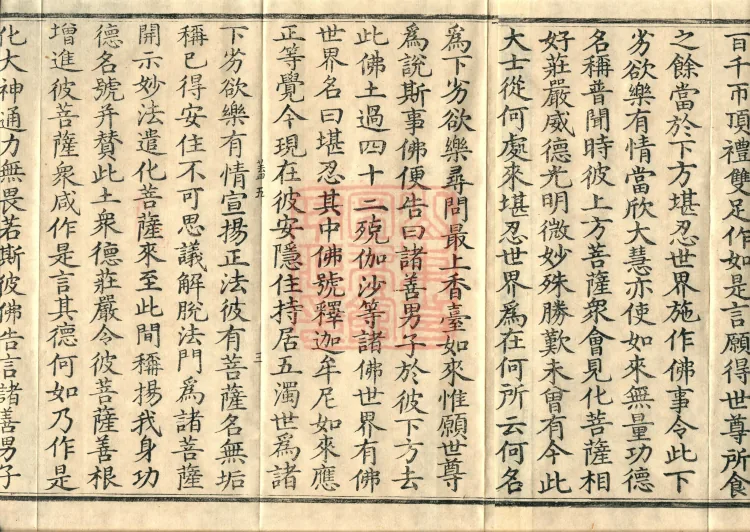 百千帀頂禮雙足作如是言願得世尊所食
之餘當於下方堪忍世界施作佛事令此下
劣欲樂有情當欣大慧亦使如來無量功德
名稱普聞時彼上方菩薩衆會見化菩薩相
好莊嚴威德光明微妙殊勝歎未曾有今此
大士從何處來堪忍世界爲在何所云何名
爲下劣欲樂尋問最上香臺如來惟願世尊
爲說斯事佛便告曰諸善男子於彼下方去
此佛土過四十二殑伽沙等諸佛世界有佛
世界名曰堪忍其中佛號釋迦牟尼如來應
正等覺今現在彼安隱住持居五濁世爲諸
下劣欲樂有情宣揚正法彼有菩薩名無垢
稱已得安住不可思議解脫法門爲諸菩薩
開示妙法遣化菩薩來至此間稱揚我身功
德名號并贊此土衆德莊嚴令彼菩薩善根
增進彼菩薩衆咸作是言其德何如乃作是
化大神通力無畏若斯彼佛告言諸善男子